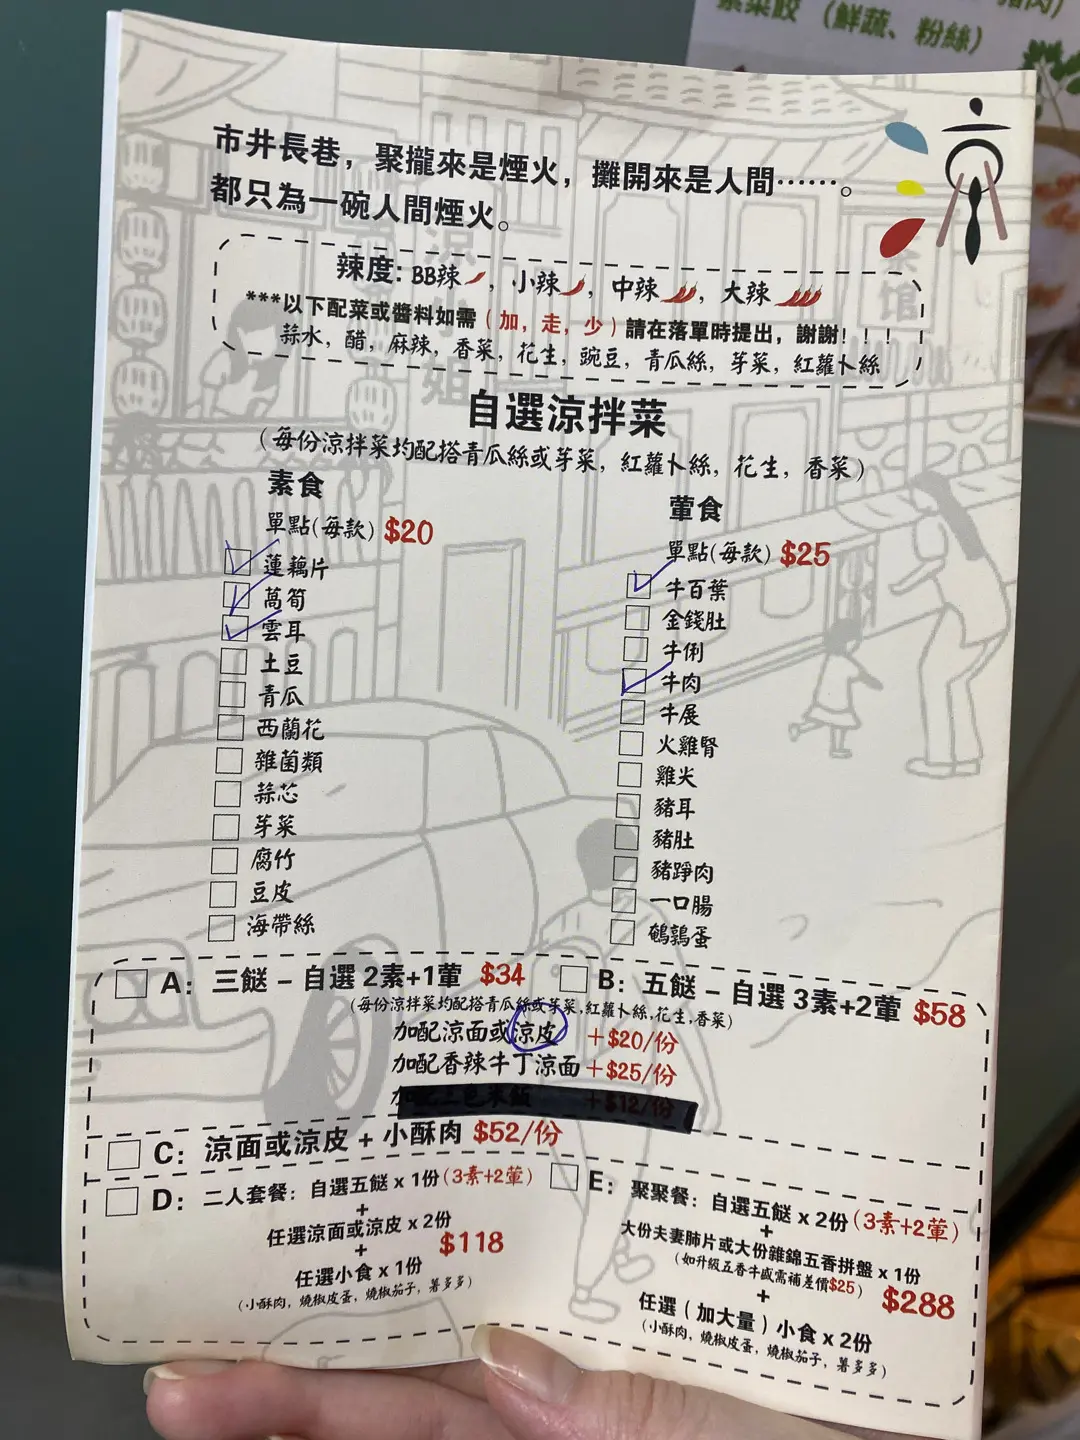 素菜餃（鮮蔬、粉絲）
市井長巷，聚攏來是煙火，攤開來是人間……。
都只為一碗人間煙火。
辣度: BB辣，小辣，中辣，大辣
***以下配菜或醬料如需（加，走，少）請在落單時提出，謝謝！！！
蒜水，醋，麻辣，香菜，花生，豌豆，青瓜絲，芽菜，紅蘿卜絲
自選涼拌菜
（每份涼拌菜均配搭青瓜絲或芽菜，紅蘿卜絲，花生，香菜）
素食
單點(每款) $20
蓮藕片
萵筍
雲耳
土豆
青瓜
西蘭花
雜菌類
蒜芯
芽菜
腐竹
豆皮
海帶絲
葷食
單點(每款) $25
牛百葉
金錢肚
牛脷
牛肉
牛展
火雞腎
雞尖
豬耳
豬肚
豬踭肉
一口腸
鵪鶉蛋
A：三餸 – 自選 2素+1葷 $34
B：五餸 – 自選 3素+2葷 $58
(每份涼拌菜均配搭青瓜絲或芽菜,紅蘿卜絲,花生,香菜)
加配涼面或涼皮 +$20/份
加配香辣牛丁涼面 +$25/份
+$12/份
C：涼面或涼皮 + 小酥肉 $52/份
D：二人套餐：自選五餸 x 1份(3素+2葷)
+
任選涼面或涼皮 x 2份
+
$118
任選小食 x 1份
(小酥肉，燒椒皮蛋，燒椒茄子，薯多多)
E：聚聚餐：自選五餸 x 2份(3素+2葷)
+
大份夫妻肺片或大份雜錦五香拼盤 x 1份
(如升級五香牛盛需補差價$25)
+
$288
任選（加大量）小食 x 2份
(小酥肉，燒椒皮蛋，燒椒茄子，薯多多)